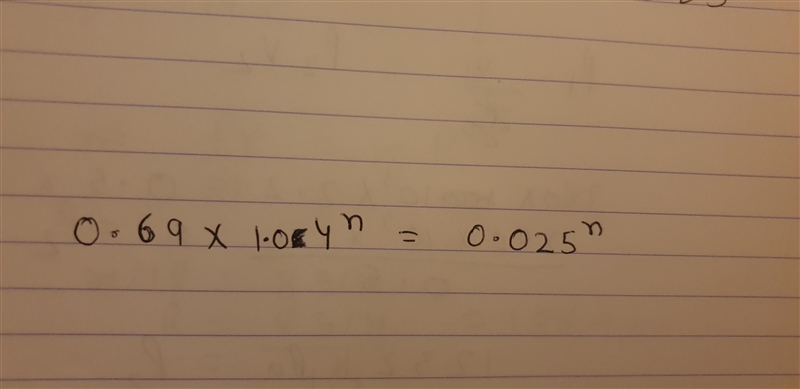 0.69 x 1.04ⁿ = 0.025ⁿ